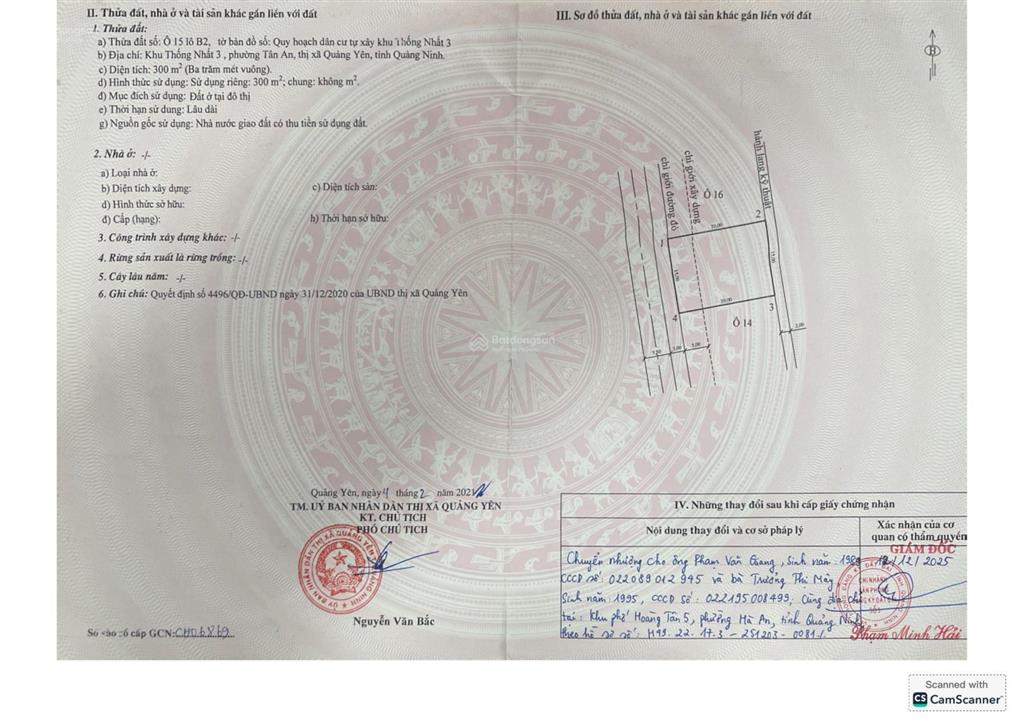 II. Thửa đất, nhà ở và tài sản khác gắn liền với đất
1. Thửa đất:
a) Thửa đất số: Ô 15 lô B2, tờ bản đồ số: Quy hoạch dân cư tự xây khu Thống Nhất 3
b) Địa chỉ: Khu Thống Nhất 3 , phường Tân An, thị xã Quảng Yên, tỉnh Quảng Ninh.
c) Diện tích: 300 m² (Ba trăm mét vuông).
d) Hình thức sử dụng: Sử dụng riêng: 300 m²; chung: không m².
đ) Mục đích sử dụng: Đất ở tại đô thị
e) Thời hạn sử dụng: Lâu dài
g) Nguồn gốc sử dụng: Nhà nước giao đất có thu tiền sử dụng đất.
2. Nhà ở: -/-
a) Loại nhà ở:
b) Diện tích xây dựng:
c) Diện tích sàn:
d) Hình thức sở hữu:
đ) Cấp (hạng):
h) Thời hạn sở hữu:
3. Công trình xây dựng khác: -/-
4. Rừng sản xuất là rừng trồng: -/-
5. Cây lâu năm: -/-
6. Ghi chú: Quyết định số 4496/QĐ-UBND ngày 31/12/2020 của UBND thị xã Quảng Yên
Quảng Yên, ngày 4 tháng 2 năm 2021
TM. UỶ BAN NHÂN DÂN THỊ XÃ QUẢNG YÊN
KT. CHỦ TỊCH
PHÓ CHỦ TỊCH
Nguyễn Văn Bắc
Số vào sổ cấp GCN: CH06869
III. Sơ đồ thửa đất, nhà ở và tài sản khác gắn liền với đất
B
chỉ giới đường đỏ
chỉ giới xây dựng
hành lang kỹ thuật
Ô 16
1
2
20,00
15,00
15,00
20,00
3
4
Ô 14
7,50
5,00
5,00
2,00
Batdongsan
IV. Những thay đổi sau khi cấp giấy chứng nhận
Nội dung thay đổi và cơ sở pháp lý
Xác nhận của cơ
quan có thẩm quyền
GIÁM ĐỐC
Chuyển nhượng cho ông Phạm Văn Giang, Sinh năm: 1989
CCCD số: 022089012945 và bà Trương Thị Mây
Sinh năm: 1995, CCCD số: 022195008499; Cùng địa chỉ
tại: Khu phố Hoàng Tân 5, phường Hà An, tỉnh Quảng Ninh
theo hồ sơ số: H49.22.17.3 - 251203 - 0081/.
12/12/2025
Phạm Minh Hải
Scanned with
CS CamScanner